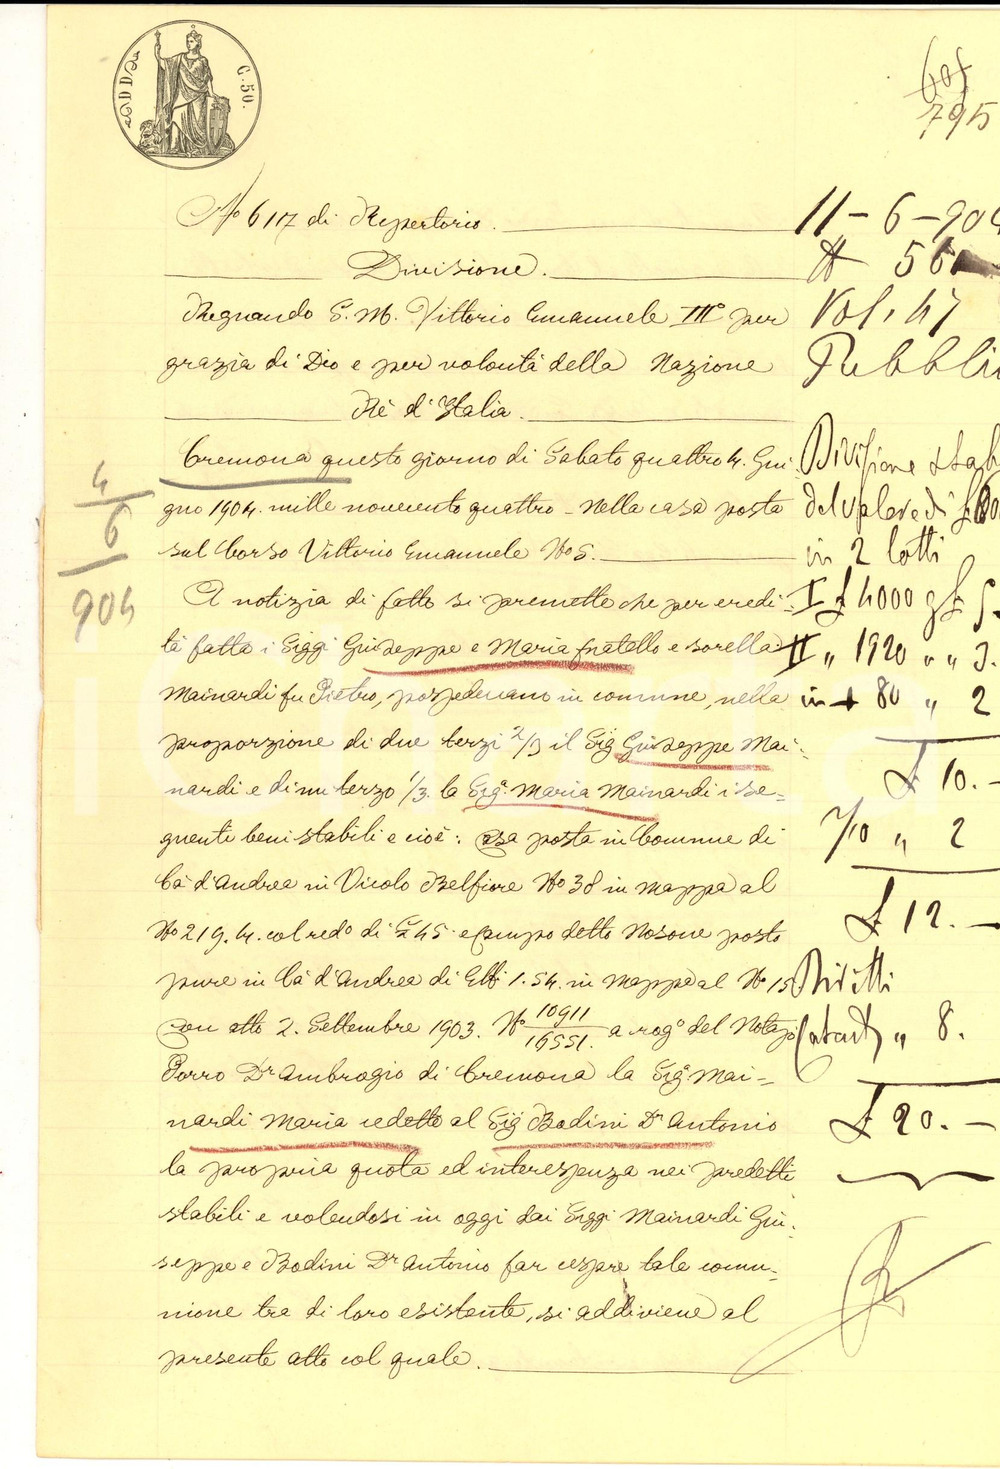 C. 50.
795
No 6117 di Repertorio.
Divisione.
Regnando S. M. Vittorio Emanuele IIIº per
grazia di Dio e per volontà della Nazione
Rè d'Italia.
Cremona questo giorno di Sabato quattro 4. Giu-
gno 1904. mille novecento quattro - nella casa posta
sul Corso Vittorio Emanuele No 5.
A notizia di fatto si premette che per eredi-
tà fatta i Siggi Giuseppe e Maria fratello e sorella
Mainardi fu Pietro, possedevano in comune, nella
proporzione di due terzi 2/3 il Sig Giuseppe Mai-
nardi e di un terzo 1/3. la Sigª Maria Mainardi i se-
guenti beni stabili e cioè: Casa posta in Comune di
Cà d'Andrea in Vicolo Belfiore No 38 in mappa al
No 219. 4. col redº di £ 45 e Campo detto Nosone posto
pure in Cà d'Andrea di Ett. 1. 54. in mappa al No 15
Con atto 2. Settembre 1903. No 10911/16551. a rogº del Notajo
Porro Dr Ambrogio di Cremona la Sigª Mai-
nardi Maria cedette al Sig Bodini Dr Antonio
la propria quota ed interessenza nei predetti
stabili e volendosi in oggi dai Siggi Mainardi Giu-
seppe e Bodini Dr Antonio far cessare tale comu-
nione tra di loro esistente, si addiviene al
presente atto col quale.
4/6
904
11 - 6 - 904
# 56
Vol. 47
Pubbli
Divisione stab
del valore di £
in 2 lotti
I £ 4000
II " 1920 " "
in + 80 " 2
£ 10. -
7/10 " 2
£ 12. -
Diritti
Catast " 8.
£ 20. -